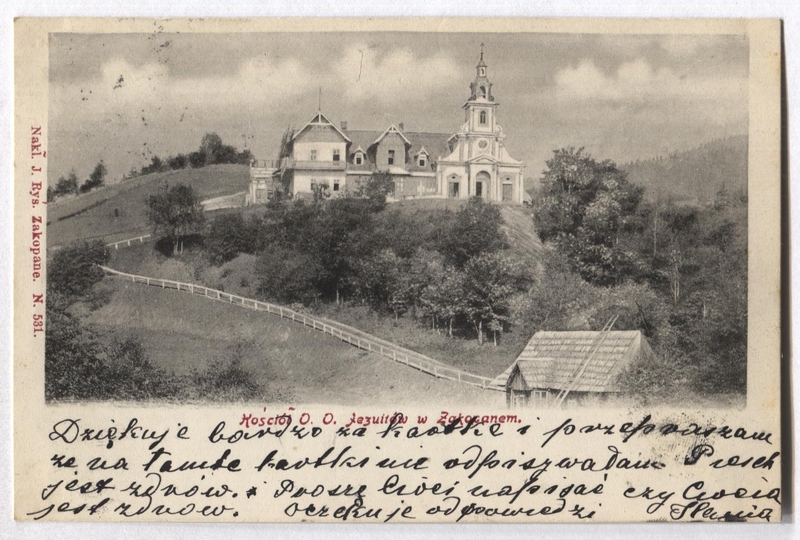 Nakł. J. Ryś. Zakopane. N. 531.
Kościół O. O. Jezuitów w Zakopanem.
Dziękuje bardzo za kartkę i przepraszam
że na tamte kartki nie
jest zdrów. i Proszę Cioci napisać czy Ciocia
jest zdrów. Oczekuje odpowiedzi